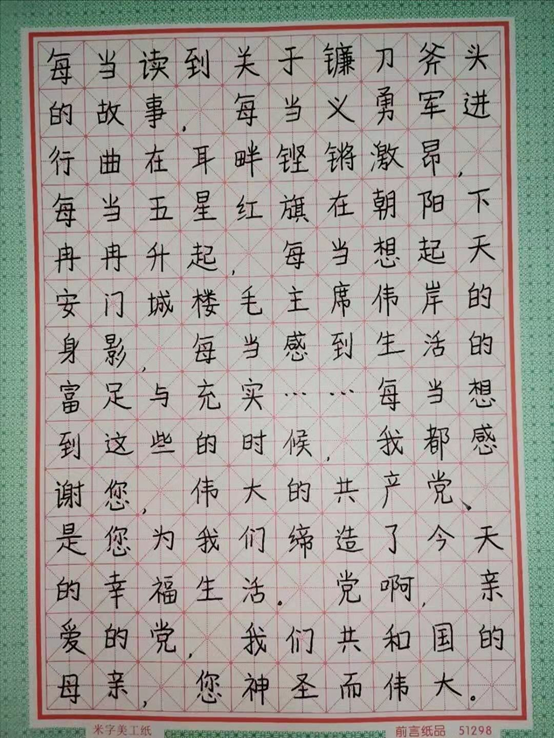 每当读到关于镰刀斧头
的故事，每当义勇军进
行曲在耳畔铿锵激昂，
每当五星红旗在朝阳下
冉冉升起，每当想起天
安门城楼毛主席伟岸的
身影，每当感到生活的
富足与充实……每当想
到这些的时候，我都感
谢您，伟大的共产党、
是您为我们缔造了今天
的幸福生活。党啊，亲
爱的党，我们共和国的
母亲，您神圣而伟大。
米字美工纸 前言纸品 51298